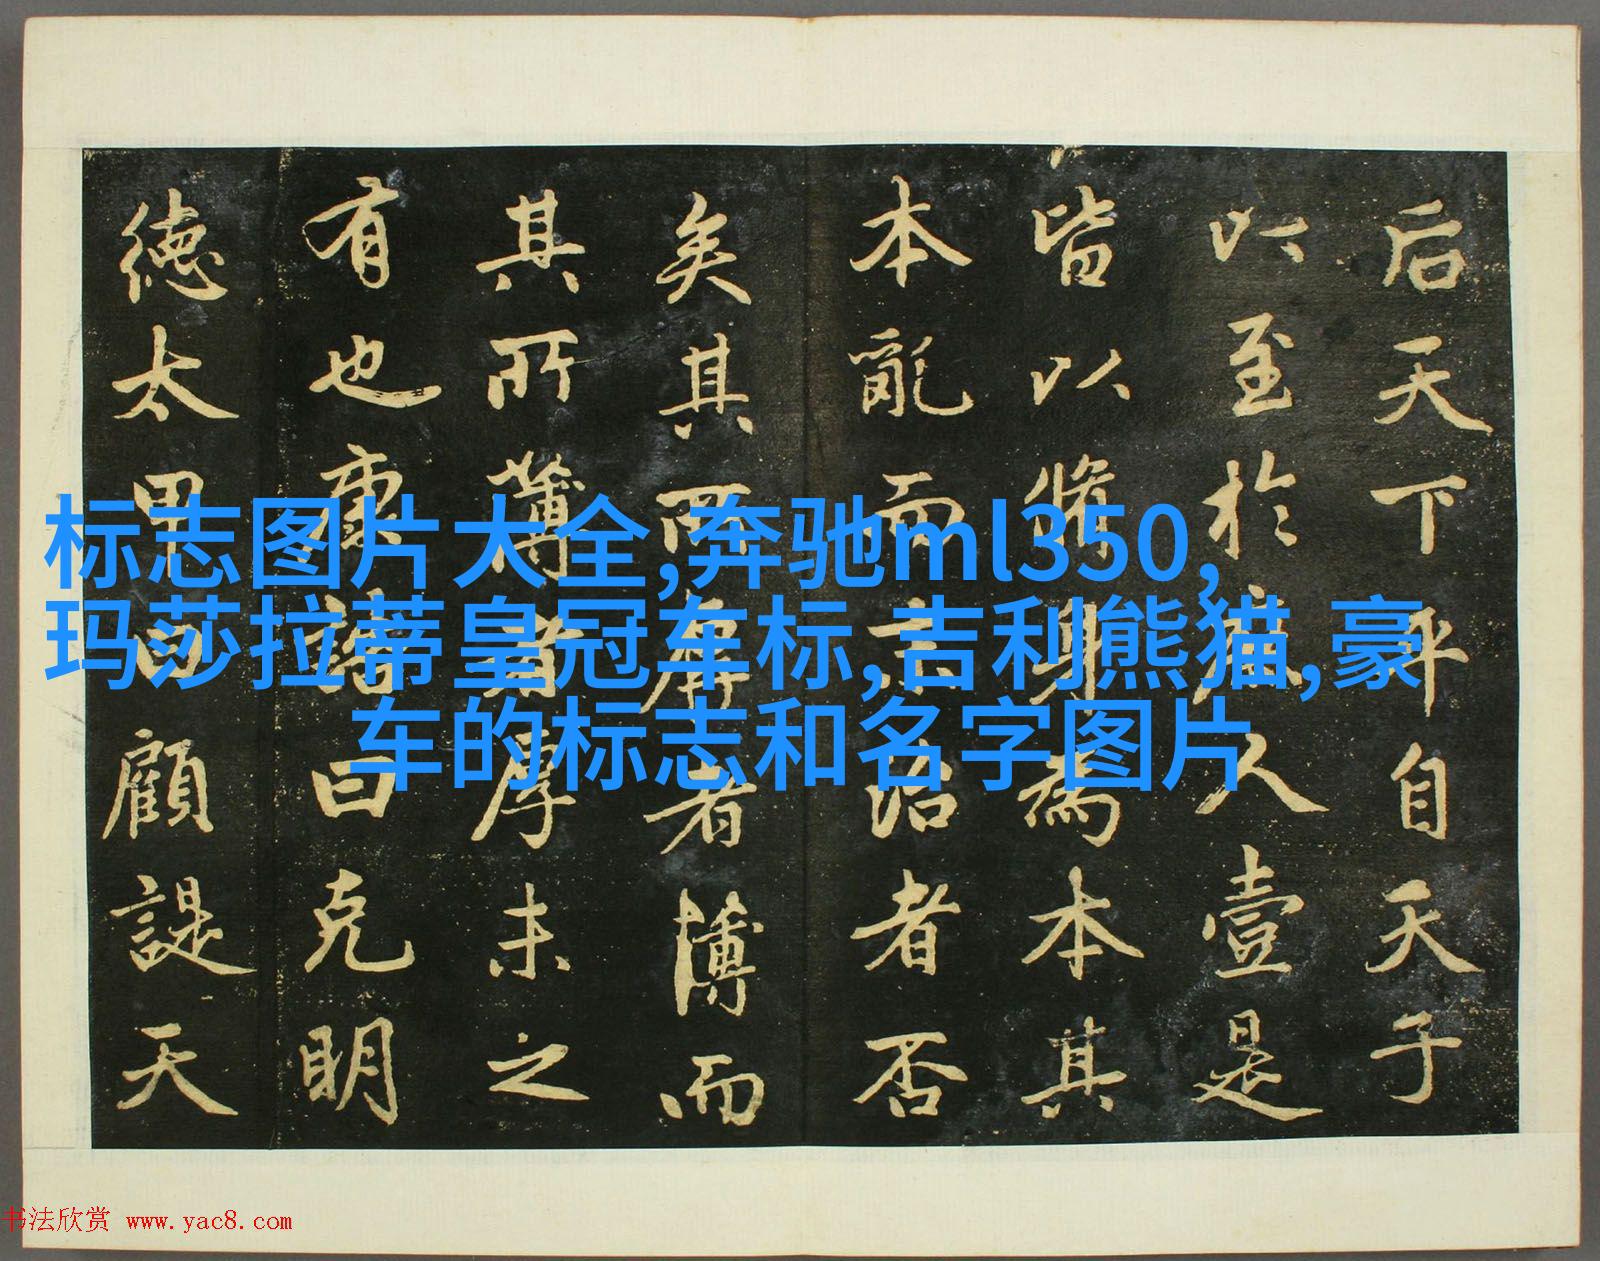 后天下平自天子
以至於庶人壹是
皆以脩身為本其
本亂而末治者否
矣其所厚者薄而
其所薄者厚未之
有也康誥曰克明
德太甲曰顧諟天
标志图片大全,奔驰ml350,
玛莎拉蒂皇冠车标,吉利熊猫,豪
车的标志和名字图片
书法欣赏 www.yac8.com